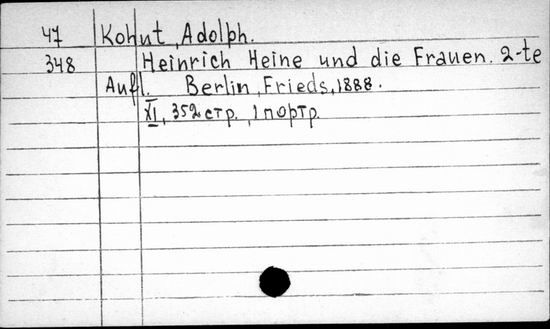 47 Kohut, Adolph.
348 Heinrich Heine und die Frauen. 2-te
Aufl. Berlin, Frieds, 1888.
XI, 352 стр., 1 портр.